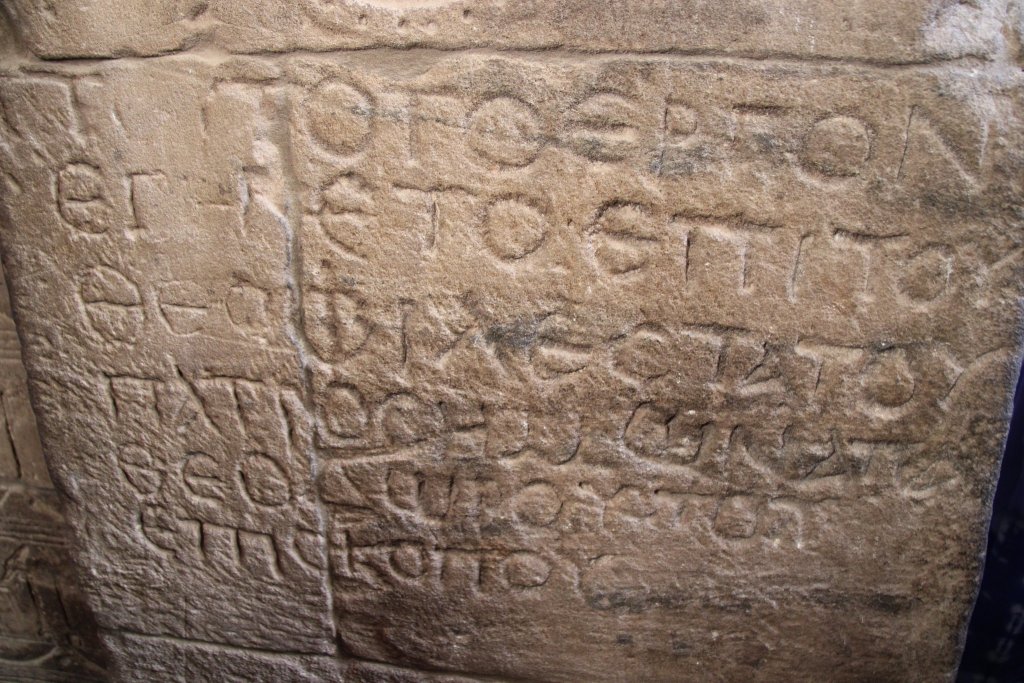 ΤΟΥΤΟΤΟΕΡΓΟΝ
ΕΓΕΝΕΤΟΕΠΙΤΟΥ
ΘΕΟΦΙΛΕϹΤΑΤΟΥ
ΠΑΤΡΟϹΗΜωΝΑΠΑ
ΘΕΟΔωΡΟΥΤΟΥ
ΕΠΙϹΚΟΠΟΥ